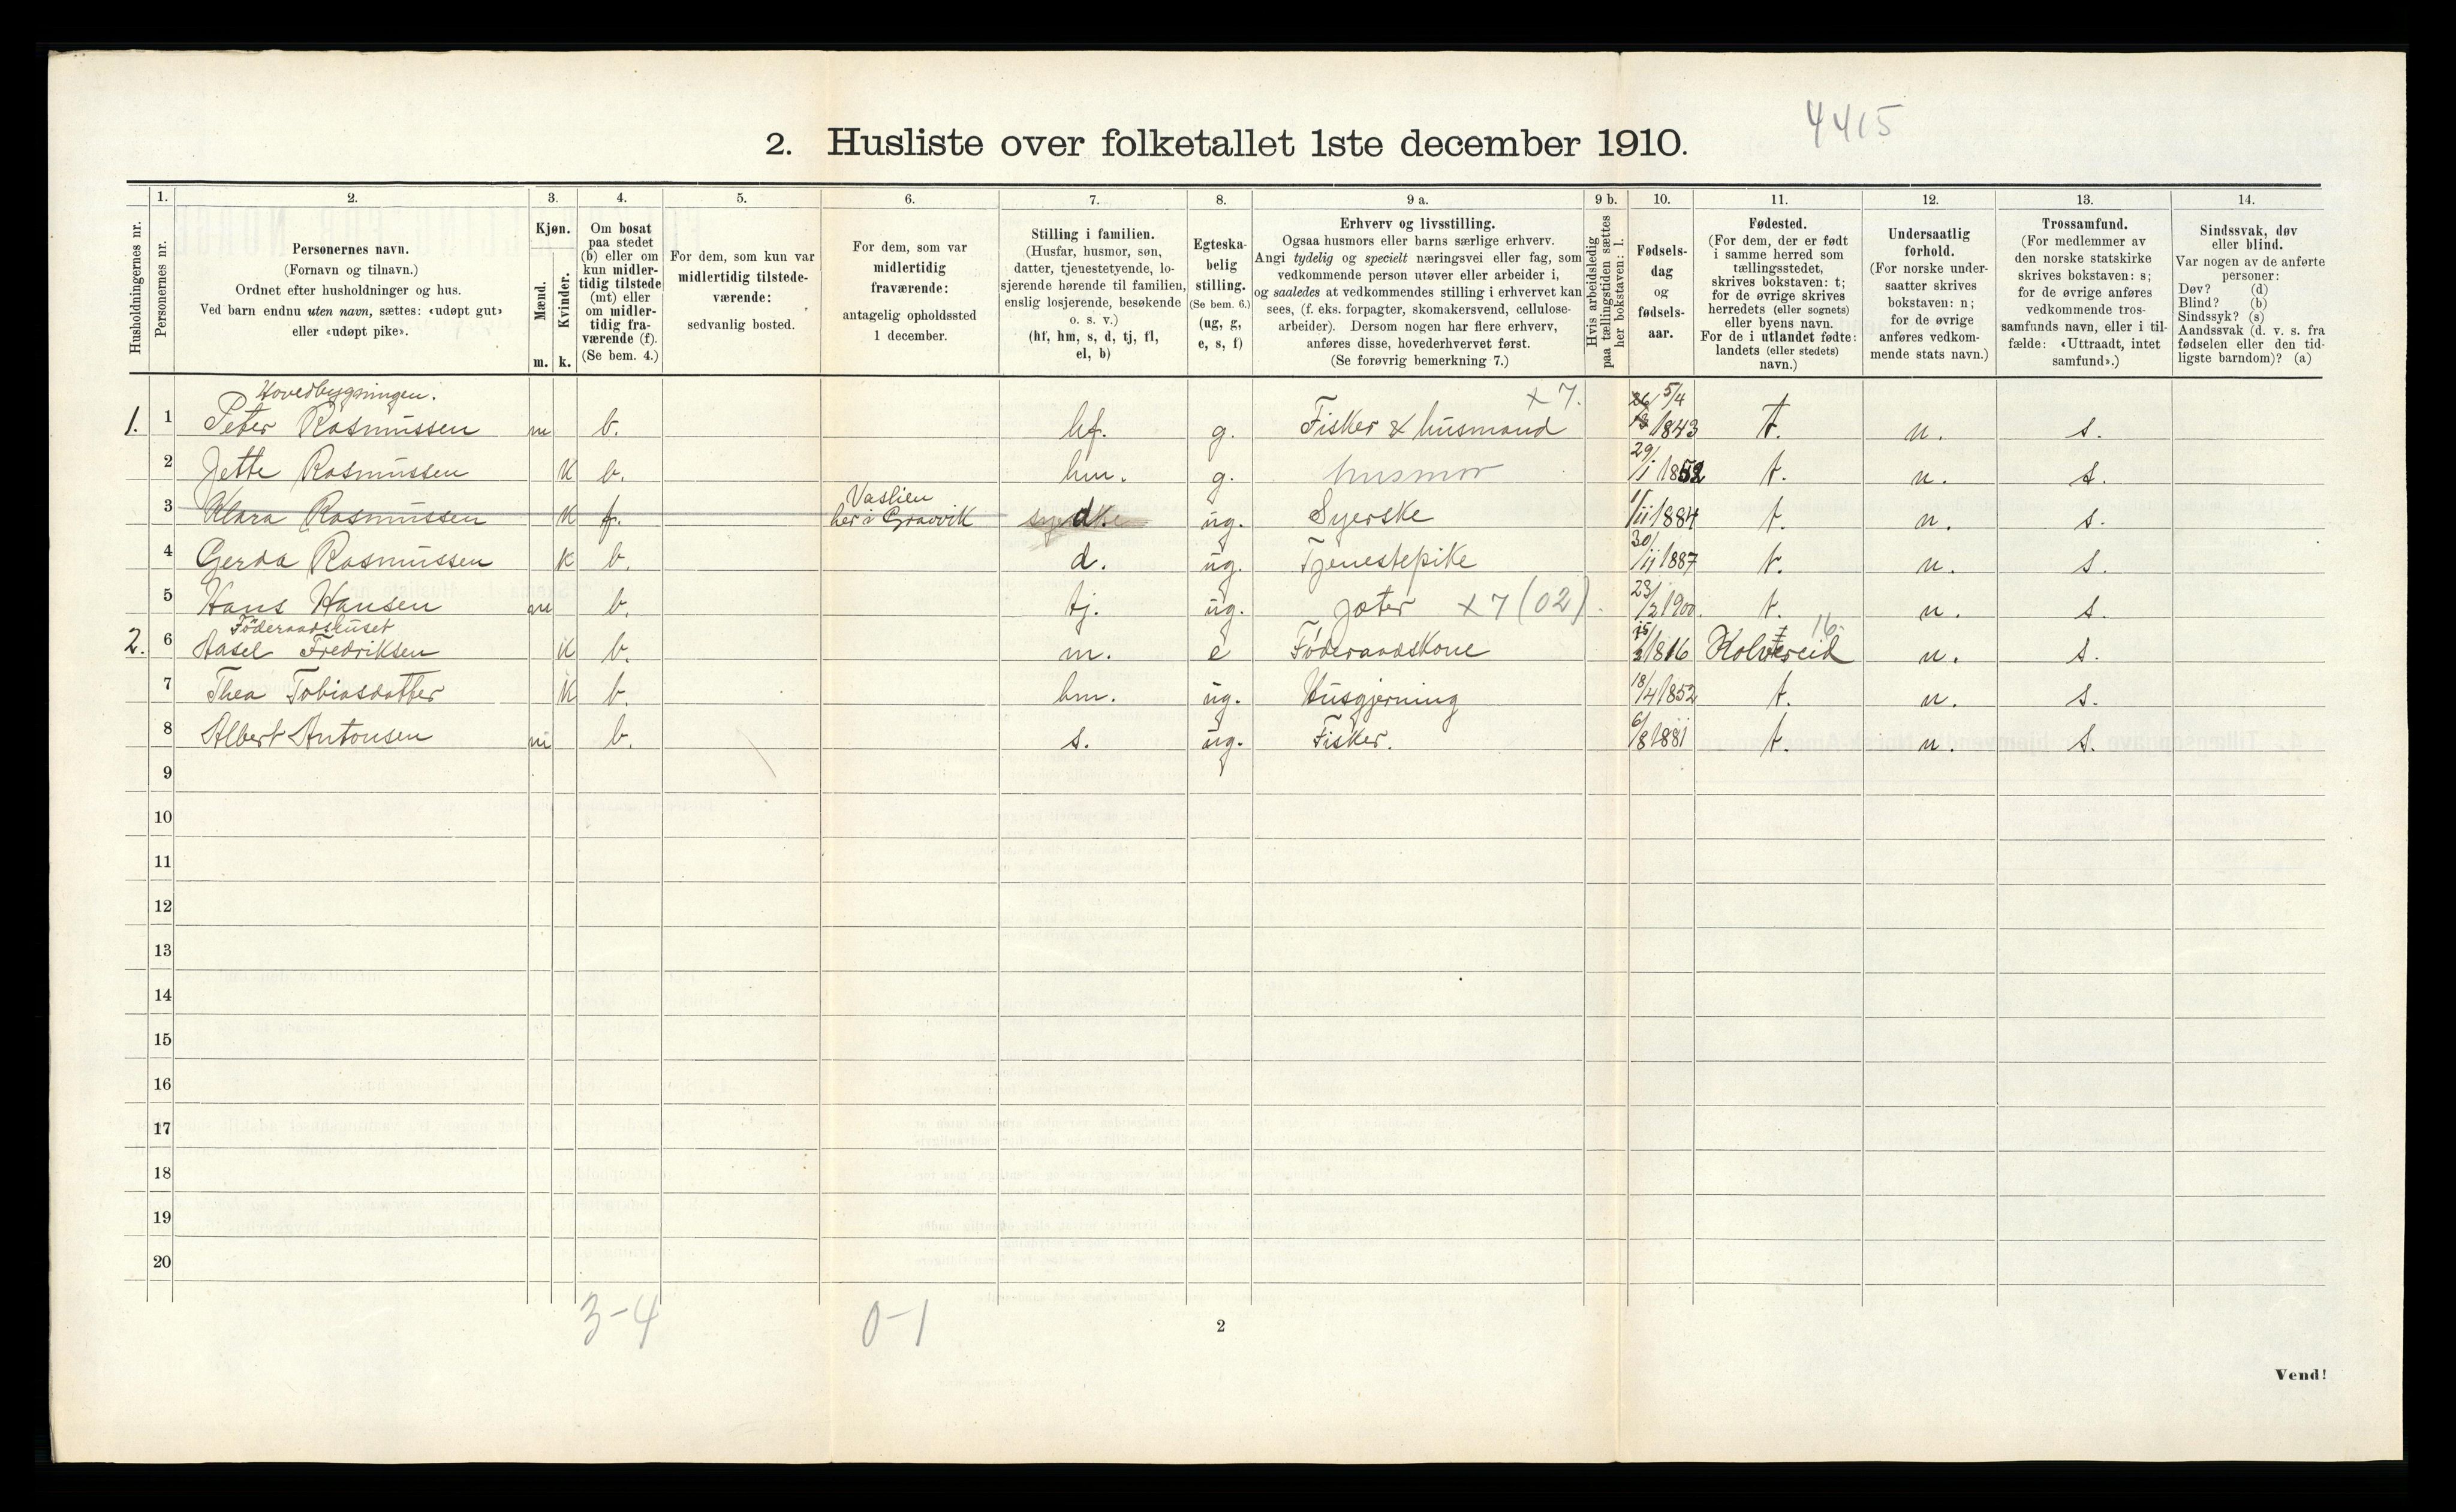 4415
2. Husliste over folketallet 1ste december 1910.
Husholdningernes nr.
1.
Personernes nr.
2.
Personernes navn.
(Fornavn og tilnavn.)
Ordnet efter husholdninger og hus.
Ved barn endnu uten navn, sættes: «udøpt gut»
eller «udøpt pike».
3.
Kjøn.
Mænd.
Kvinder.
m. k.
4.
Om bosat
paa stedet
(b) eller om
kun midler-
tidig tilstede
(mt) eller
om midler-
tidig fra-
værende (f).
(Se bem. 4.)
5.
For dem, som kun var
midlertidig tilstede-
værende:
sedvanlig bosted.
6.
For dem, som var
midlertidig
fraværende:
antagelig opholdssted
1 december.
7.
Stilling i familien.
(Husfar, husmor, søn,
datter, tjenestetyende, lo-
sjerende hørende til familien,
enslig losjerende, besøkende
o. s. v.)
(hf, hm, s, d, tj, fl,
el, b)
8.
Egteska-
belig
stilling.
(Se bem. 6.)
(ug, g,
e, s, f)
9 a.
Erhverv og livsstilling.
Ogsaa husmors eller barns særlige erhverv.
Angi tydelig og specielt næringsvei eller fag, som
vedkommende person utøver eller arbeider i,
og saaledes at vedkommendes stilling i erhvervet kan
sees, (f. eks. forpagter, skomakersvend, cellulose-
arbeider). Dersom nogen har flere erhverv,
anføres disse, hovederhvervet først.
(Se forøvrig bemerkning 7.)
9 b.
Hvis arbeidsledig
paa tællingstiden sættes
her bokstaven: l.
10.
Fødsels-
dag
og
fødsels-
aar.
11.
Fødested.
(For dem, der er født
i samme herred som
tællingsstedet,
skrives bokstaven: t;
for de øvrige skrives
herredets (eller sognets)
eller byens navn.
For de i utlandet fødte:
landets (eller stedets)
navn.)
12.
Undersaatlig
forhold.
(For norske under-
saatter skrives
bokstaven: n;
for de øvrige
anføres vedkom-
mende stats navn.)
13.
Trossamfund.
(For medlemmer av
den norske statskirke
skrives bokstaven: s;
for de øvrige anføres
vedkommende tros-
samfunds navn, eller i til-
fælde: «Uttraadt, intet
samfund».)
14.
Sindssvak, døv
eller blind.
Var nogen av de anførte
personer:
Døv? (d)
Blind? (b)
Sindssyk? (s)
Aandssvak (d. v. s. fra
fødselen eller den tid-
ligste barndom)? (a)
Hovedbygningen.
1. 1 Peter Rasmussen m b. hf. g. Fisker & husmand x 7. 5/4 1843 t. n. s.
2 Jette Rasmussen K b. hm. g. husmor 29/1 1852 t. n. s.
3 Klara Rasmussen K f. Vaslien her i Gravvik d. ug. Syerske 1/11 1884 t. n. s.
4 Gerda Rasmussen K b. d. ug. Tjenestepike 30/11 1887 t. n. s.
5 Hans Hansen m b. tj. ug. Jæter x 7 (02). 23/2 1900. t. n. s.
Föderaadshuset
2. 6 Aasel Fredriksen K b. m. e Føderaadskone 1816 Kolvereid 16. n. s.
7 Thea Tobiasdatter K b. hm. ug. Husgjerning 18/4 1852 t. n. s.
8 Albert Antonsen m b. s. ug. Fisker. 6/8 1881 t. n. s.
9
10
11
12
13
14
15
16
17
18
19
20
3-4 0-1
2
Vend!